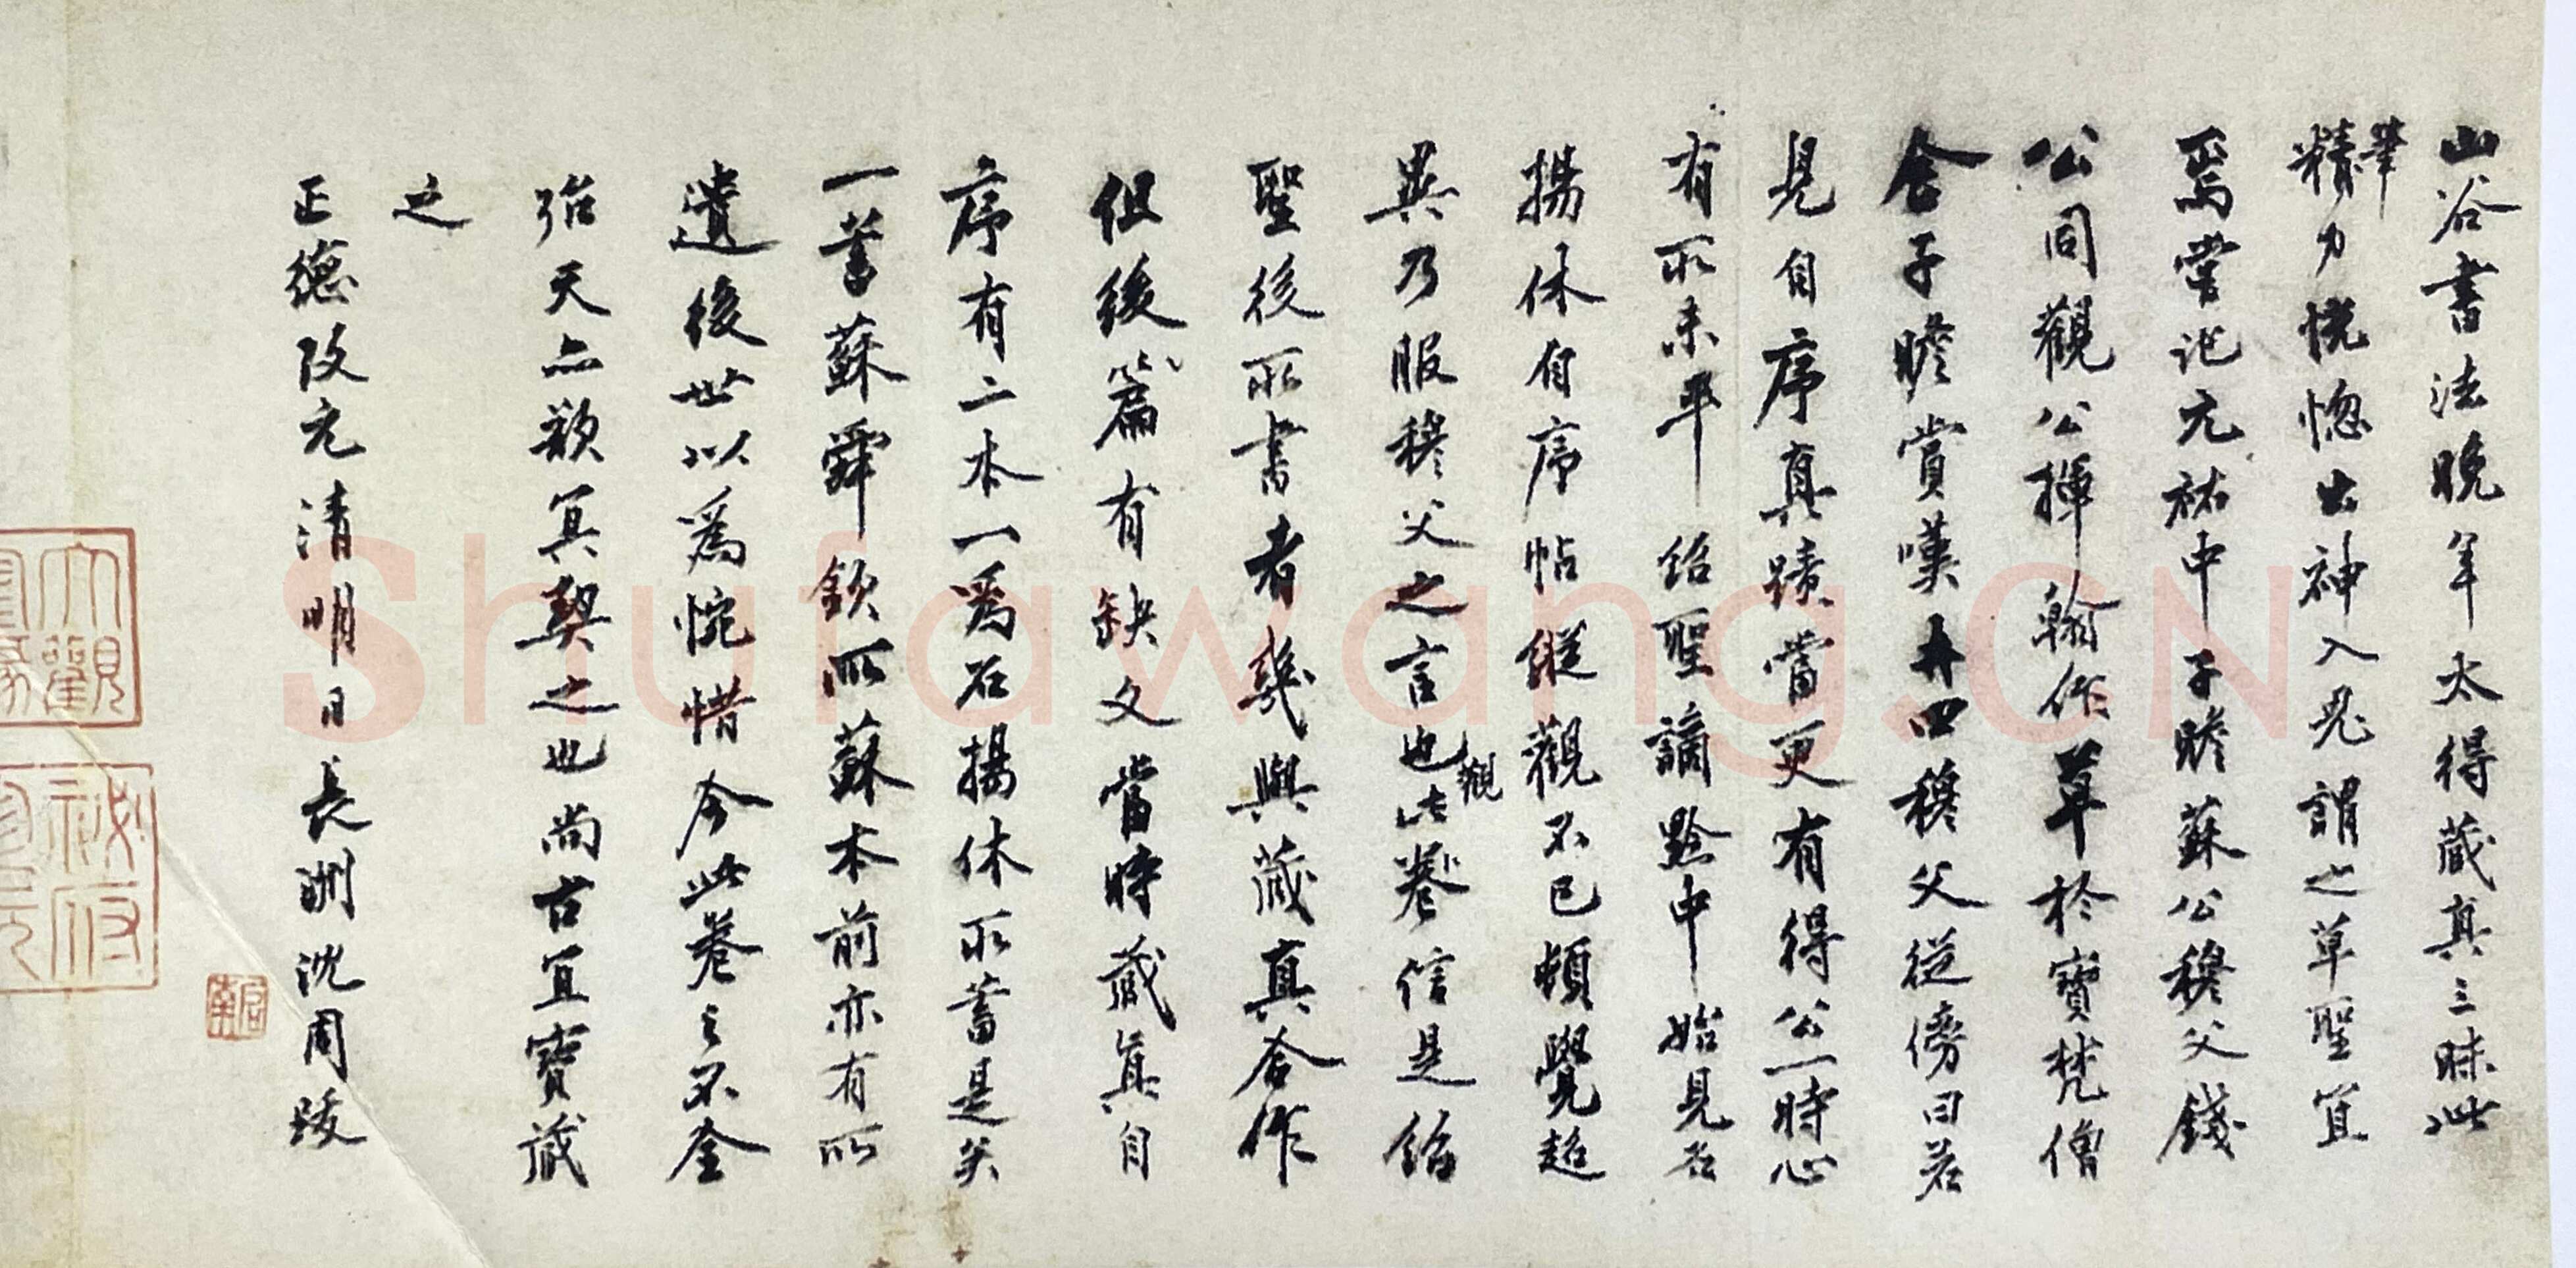 山谷書法晚年太得藏真三昧此
筆
精力恍惚出神入鬼謂之草聖宜
焉嘗記元祐中子瞻蘇公穆父錢
公同觀公揮翰作草於寶梵僧
舍子瞻賞嘆再四穆父從傍曰若
見自序真蹟當更有得公一時心
有所未平紹聖謫黔中始見石
揚休自序帖縱觀不已頓覺超
異乃服穆父之言也此卷信是紹
觀
聖後所書者幾與藏真合作
但後篇有缺文當時藏真自
序有二本一爲石揚休所蓄是矣
一蓄蘇舜欽所蘇本前亦有所
遺後世以爲惋惜今此卷之不全
殆天亦欲冥契之也尚古宜寶藏
之
正德改元清明日長洲沈周跋
大觀
秘府
啟南
Shufawang.CN